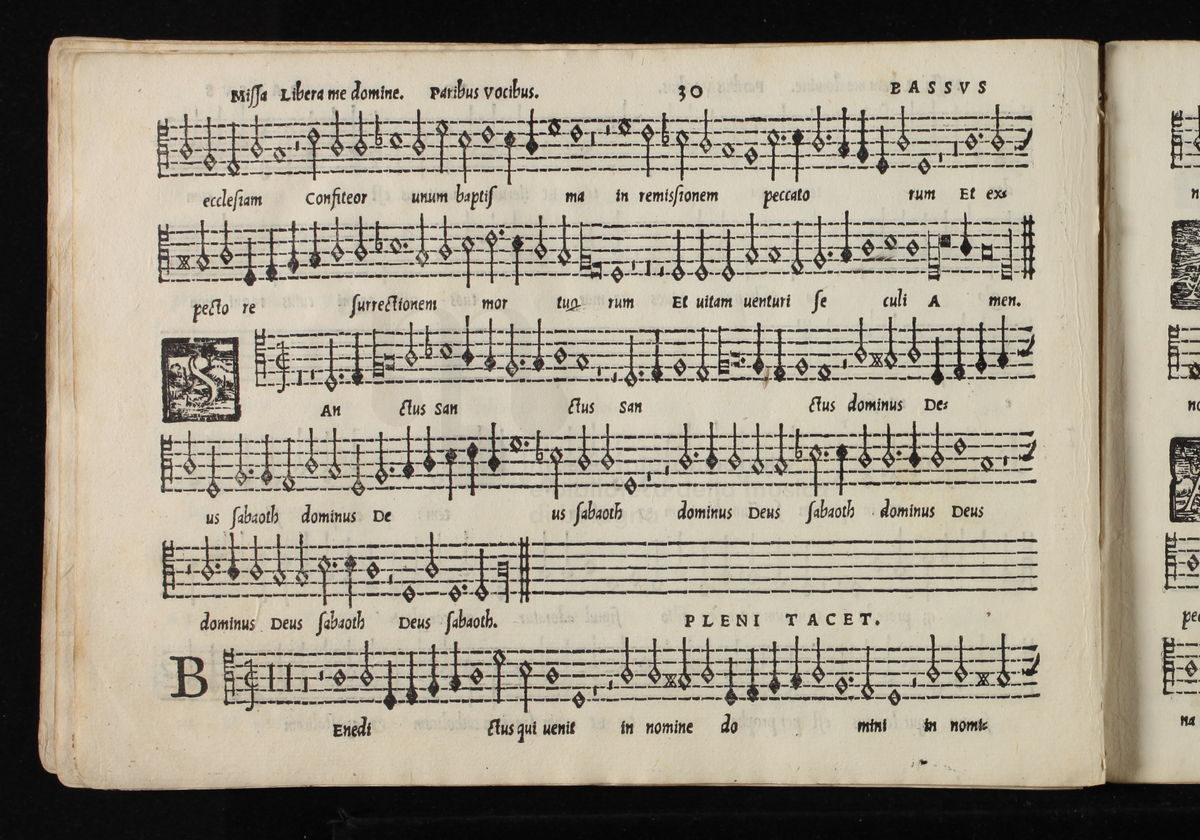 Missa Libera me domine. Paribus vocibus. 30 BASSVS
ecclesiam Confiteor unum baptis ma in remissionem peccato rum Et ex=
pecto re surrectionem mor tuo rum Et uitam uenturi se culi A men.
S An ctus San ctus San ctus dominus De=
us sabaoth dominus De us sabaoth dominus Deus sabaoth dominus Deus
dominus Deus sabaoth Deus sabaoth. PLENI TACET.
B Enedi ctus qui uenit in nomine do mini in nomi=